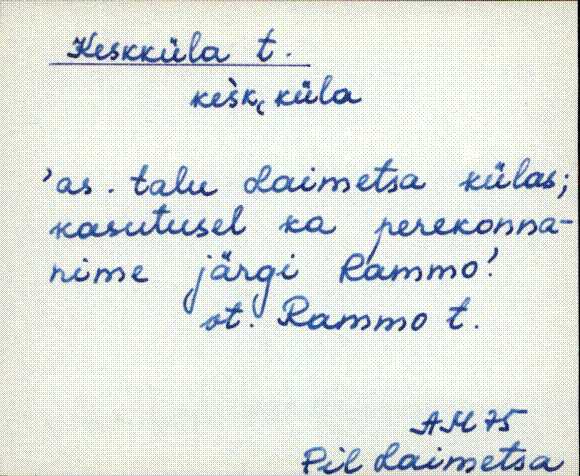 Keskküla t.
kèšk, küla
'as. talu Laimetsa külas;
kasutusel ka perekonna-
nime järgi Rammo'.
ot. Rammo t.
AM 75
Pil Laimetsa